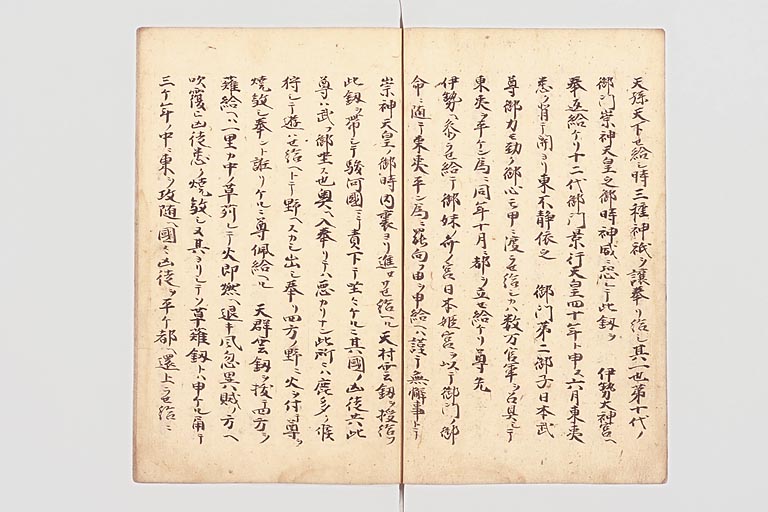 天孫天下せ給シ時三種神祇ヲ譲奉リ給シ其一也第十代ノ
御門崇神天皇之御時神威ニ恐レテ此釼ヲ 伊勢大神宮ヘ
奉返給ケリ十二代御門景行天皇四十年ト申ス六月東夷
悉ク背テ関ヨリ東不静依之 御門第二御子日本武
尊御力モ勁ク御心モ甲ニ渡ラせ給シカハ数万官軍ヲ召具シテ
東夷ヲ平ケン為ニ同年十月ニ都ヲ立せ給ケリ尊先
伊勢ヘ参ラせ給テ御妹斎ノ宮日本姫宮ヲ以テ御門ノ御
命ニ随テ東夷平ン為ニ罷向フ由ヲ申給ヘハ謹テ無懈事トテ
崇神天皇ノ御時内裏ヨリ進ロせ給ヘル天村雲釼ヲ授給フ
此釼ヲ帯シテ駿河國ニ責下テ坐ニケルニ其國ノ凶徒共此
尊ハ武ク御坐ス也奥ヘ入奉リテハ悪カリナン此所ニハ鹿多ク候
狩シテ遊ハせ給ヘトテ野ヘスカシ出シ奉リ四方ノ野ニ火ヲ付テ尊ヲ
焼敛シ奉ント謀リケルニ尊佩給ヘル 天群雲釼ヲ抜テ四方ヲ
薙給ヘハ一里カ中ノ草刈レテ火即燃ヘ退キ風忽異ハ賊ノ方ヘ
吹覆テ凶徒悉ク焼敛シヌ其ヨリシテソ草薙釼トハ申ケル角テ
三ケ年ノ中ニ東ヲ攻随ヘ國々凶徒ヲ平ケ都ヘ還上ラせ給ニ